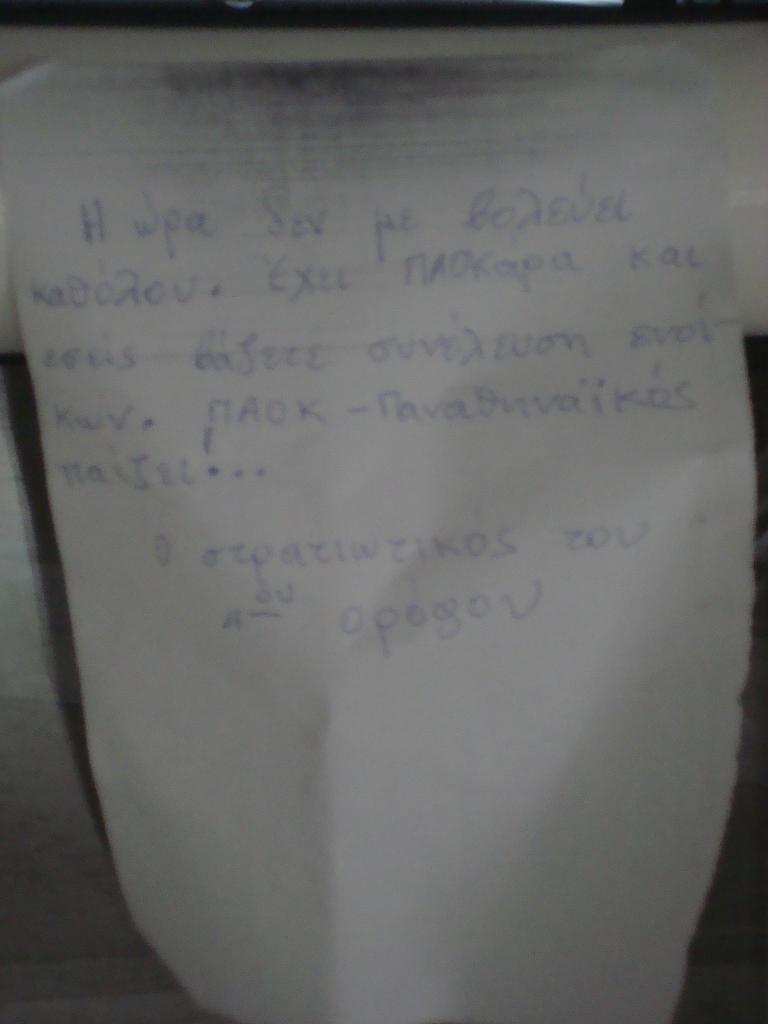 Η ώρα δεν με βολεύει
καθόλου. Έχει ΠΑΟΚάρα και
εσείς βάζετε συνέλευση ενοί-
κων. ΠΑΟΚ - Παναθηναϊκός
παίζει!...
Ο στρατιωτικός του
Α ου ορόφου